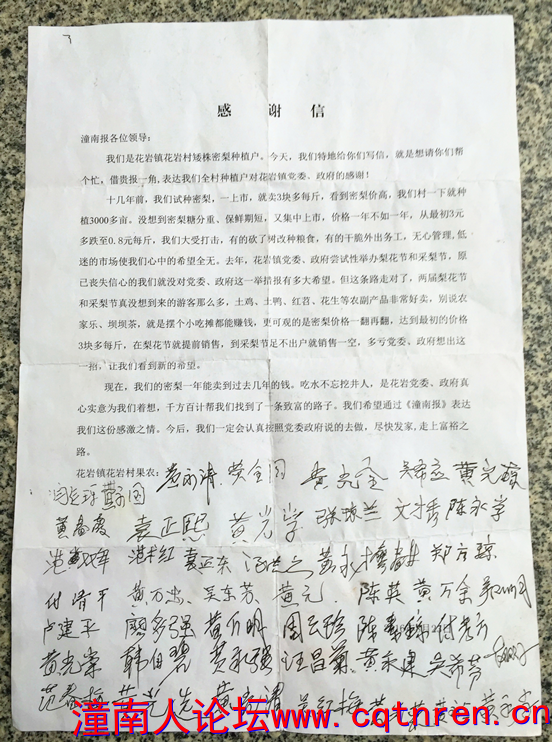 感 谢 信
潼南报各位领导:
我们是花岩镇花岩村矮株密梨种植户。今天,我们特地给你们写信,就是想请你们帮
个忙,借贵报一角,表达我们全村种植户对花岩镇党委、政府的感谢!
十几年前,我们试种密梨,一上市,就卖3块多每斤,看到密梨价高,我们村一下就种
植3000多亩。没想到密梨糖分重、保鲜期短,又集中上市,价格一年不如一年,从最初3元
多跌至0.8元每斤,我们大受打击,有的砍了树改种粮食,有的干脆外出务工,无心管理,低
迷的市场使我们心中的希望全无。去年,花岩镇党委、政府尝试性举办梨花节和采梨节,原
已丧失信心的我们就没对党委、政府这一举措报有多大希望。但这条路走对了,两届梨花节
和采梨节真没想到来的游客那么多,土鸡、土鸭、红苕、花生等农副产品非常好卖,别说农
家乐、坝坝茶,就是摆个小吃摊都能赚钱,更可观的是密梨价格一翻再翻,达到最初的价格
3块多每斤,在梨花节就提前销售,到采梨节足不出户就销售一空,多亏党委、政府想出这
一招,让我们看到新的希望。
现在,我们的密梨一年能卖到过去几年的钱。吃水不忘挖井人,是花岩党委、政府真
心实意为我们着想,千方百计帮我们找到了一条致富的路子。我们希望通过《潼南报》表达
我们这份感激之情。今后,我们一定会认真按照党委政府说的去做,尽快发家,走上富裕之
路。
花岩镇花岩村果农:
袁正熙 黄光学 张琼兰 文才秀 陈永学
袁正东
黄万忠 吴东芬 黄元 陈英 黄万余
卢建平 廖多强 周云珍
黄光荣 韩伯碧 黄永强 汪昌菊 黄永建 吴希芬
范春梅
潼南人论坛www.cqtnren.cn